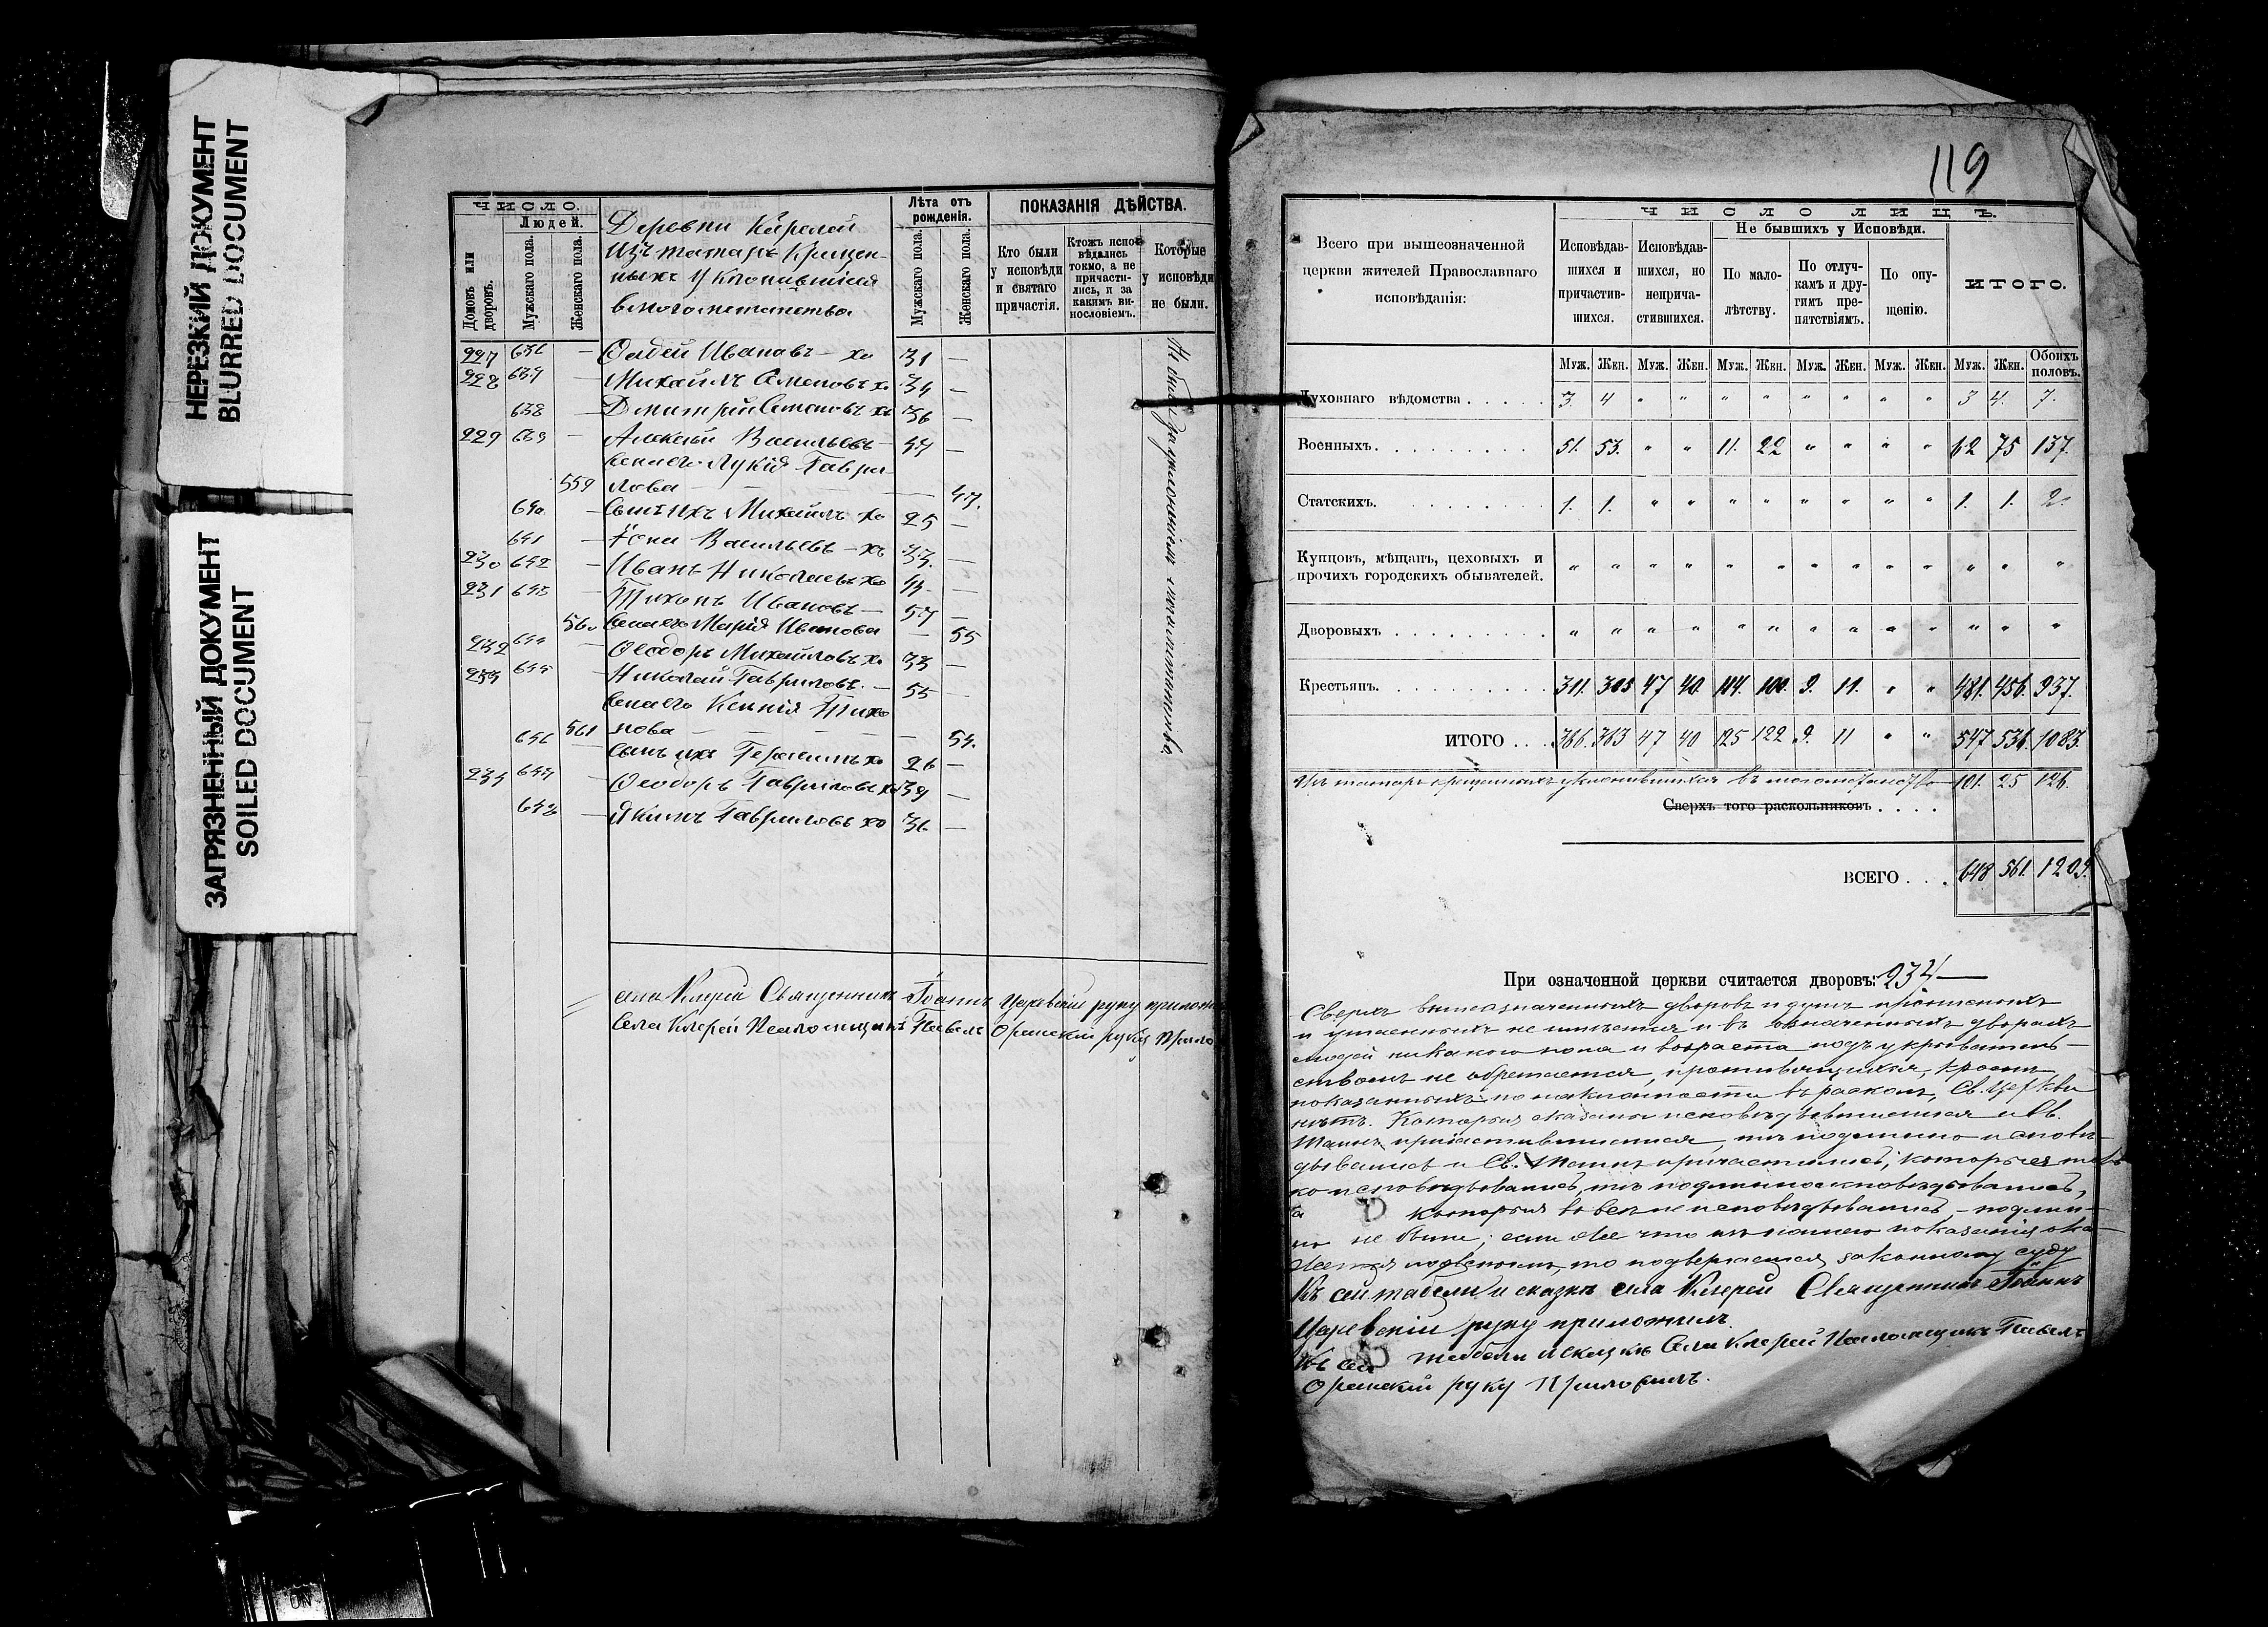 НЕРЕЗКИЙ ДОКУМЕНТ
BLURRED DOCUMENT
ЗАГРЯЗНЕННЫЙ ДОКУМЕНТ
SOILED DOCUMENT
ЧИСЛО.
Людей.
Домовъ или дворовъ.
Мужскаго пола.
Женскаго пола.
Деревни
Изъ татаръ крещен-
ныхъ уклонившіеся
въ могометанство
Лѣта отъ рожденія.
Мужскаго пола.
Женскаго пола.
ПОКАЗАНІЯ ДѢЙСТВА.
Кто были у исповѣди и святаго причастія.
Ктожъ исповѣдались токмо, а не причастились, и за какимъ винословіемъ.
Которые у исповѣди не были.
227 636 — Ивановъ — хо 31 —
228 637 — Михаилъ Семеновъ хо 34 —
638 — Димитрій Семеновъ хо 36 —
229 639 — Алексѣй Васильевъ — 47 —
Жена его Лукія Гаври-
559 лова — 47.
640 — Сынъ ихъ Михаилъ хо 25 —
641 — Іона Васильевъ — хо 33. —
230 642 — Иванъ Николаевъ хо 44. —
231 643 — Тихонъ Ивановъ — 57 —
560 Жена его Марія Иванова — 55
232 644 — Ѳеодоръ Михайловъ хо 33 —
233 645 — Николай Гавриловъ. — 55 —
Жена его Ксенія Тихо
561 нова — 54.
646 — Сынъ ихъ Герасимъ хо 26 —
234 647 — Ѳеодоръ Гавриловъ хо 39 —
648 — Якимъ Гавриловъ хо 36 —
Не были за уклоненіемъ въ могометанство
села Ключей Священникъ Іоаннъ Царевскій руку прилож
Села Ключей Псаломщикъ Павелъ руку Прило
119
Всего при вышеозначенной церкви жителей Православнаго исповѣданія:
ЧИСЛО ЛИЦЪ.
Исповѣдавшихся и причастившихся.
Исповѣдавшихся, но непричастившихся.
Не бывшихъ у Исповѣди.
По малолѣтству.
По отлучкамъ и другимъ препятствіямъ.
По опущенію.
ИТОГО.
Муж. Жен. Муж. Жен. Муж. Жен. Муж. Жен. Муж. Жен. Муж. Жен. Обоихъ половъ.
Духовнаго вѣдомства . . . . . 3. 4 " " " " " " " " 3 4. 7.
Военныхъ. . . . . . . . . 51. 53. " " 11. 22 " " " " 62 75 137.
Статскихъ. . . . . . . . . 1. 1. " " " " " " " " 1. 1. 2.
Купцовъ, мѣщанъ, цеховыхъ и прочихъ городскихъ обывателей. " " " " " " " " " " " " "
Дворовыхъ . . . . . . . . . " " " " " " " " " " " " "
Крестьянъ. . . . . . . . . . 311. 305 47 40. 114. 100. 9. 11. " " 481. 456. 937.
ИТОГО . . . 366. 363 47 40 125 122 9. 11 " " 547 536. 1083.
Изъ татаръ крещенныхъ уклонившихся въ могометанство 101. 25 126.
Сверхъ того раскольниковъ . . . .
ВСЕГО . . . 648 561. 1209.
При означенной церкви считается дворовъ: 234 —
Сверхъ вышеозначенныхъ дворовъ и душъ прописныхъ
и утаенныхъ не имѣется и въ означенныхъ дворахъ
людей никакого пола и возраста подъ укрыватель-
ствомъ не обретается, противящихся, кромѣ
показанныхъ по наклонности въ расколъ, Св. Церкви
нѣтъ. Которыя сказаны исповѣдывшимися и Св.
Таинъ причастившимися, тѣ подлинно исповѣ-
дывались и Св. Таинъ причастились; которые толь
ко исповѣдывались, тѣ подлинно исповѣдывались,
а которыя вовсе не исповѣдывались, — подлин-
но не были; если же что изъ нашего показанія ока-
жется ложнымъ, то подвергаемся законному суду
Къ сей табели и сказкѣ села Ключей Священникъ Іоаннъ
Царевскій руку приложилъ.
Къ сей табели и сказкѣ Села Ключей Псаломщикъ Павелъ
руку Приложилъ.